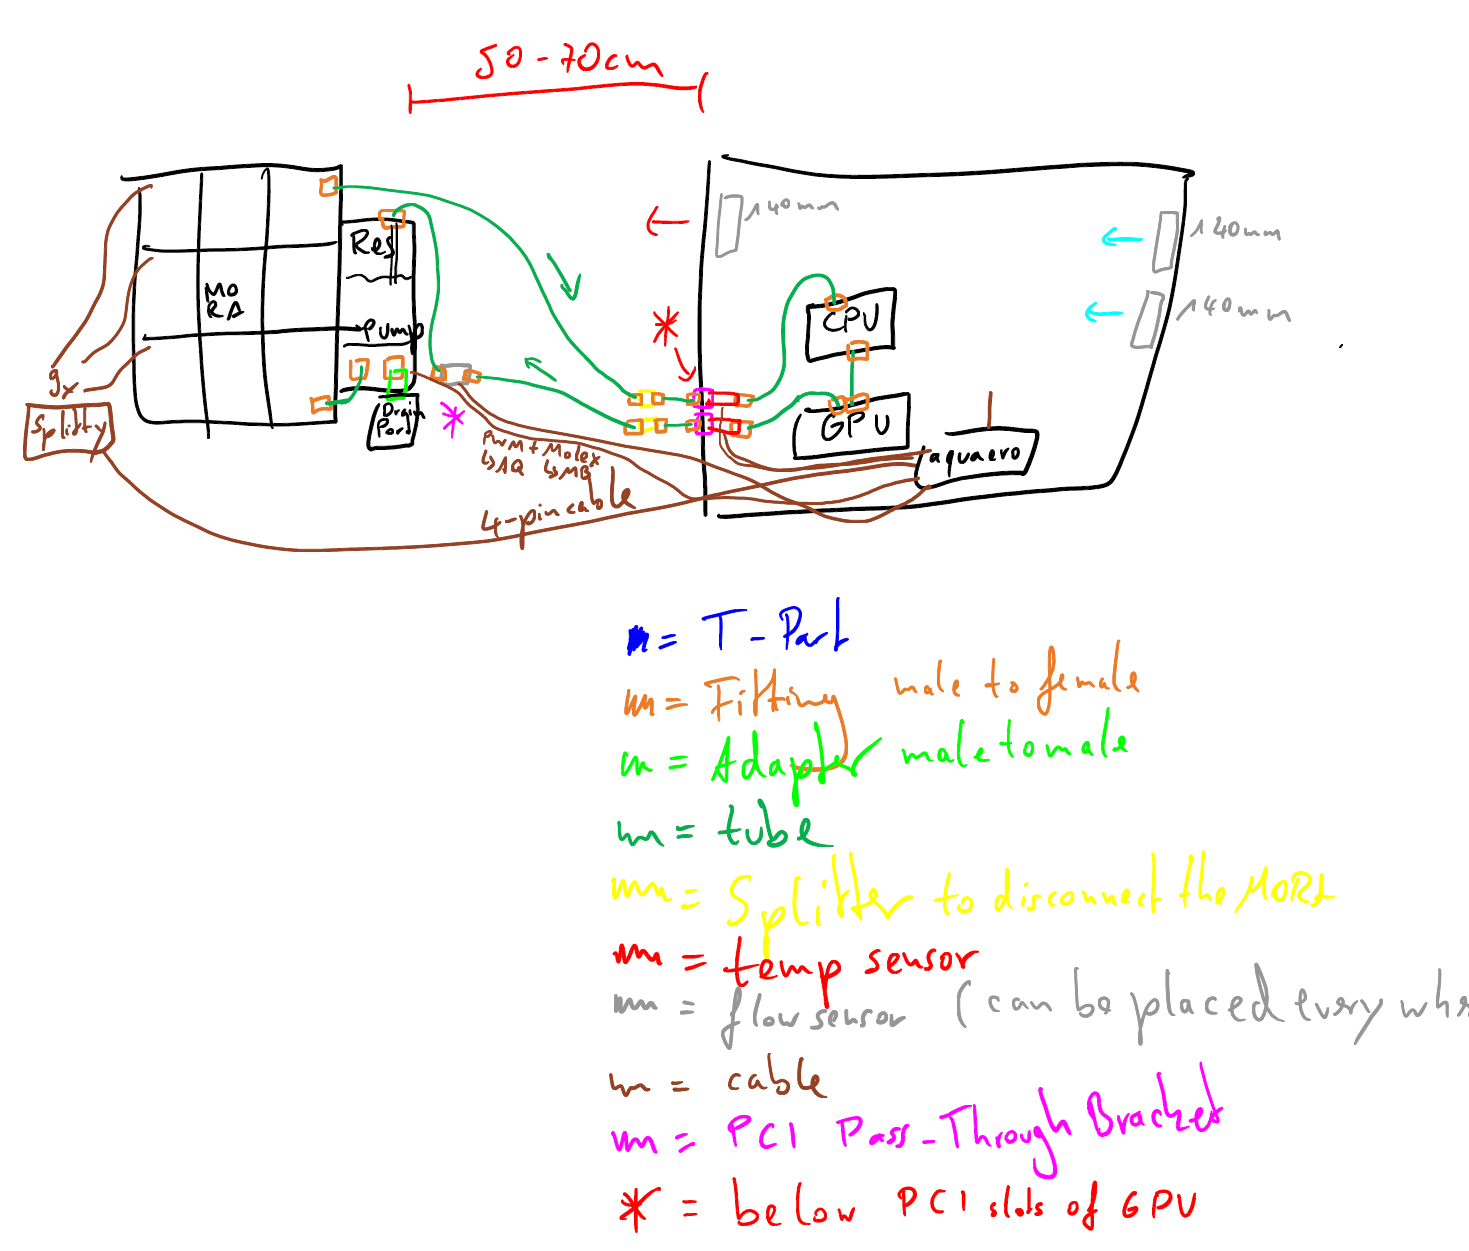 50-70cm
140mm
120mm
140mm
Res
MO
RA
Pump
CPU
GPU
9x
Splitty
Drain
Port
PWM + Molex
↳AQ ↳MB
4-pin cable
aquaero
= T-Part
= Fitting male to female
= Adapter male to male
= tube
= Splitter to disconnect the MORA
= temp sensor
= flow sensor (can be placed every whe
= cable
= PCI Pass-Through Bracket
* = below PCI slots of GPU